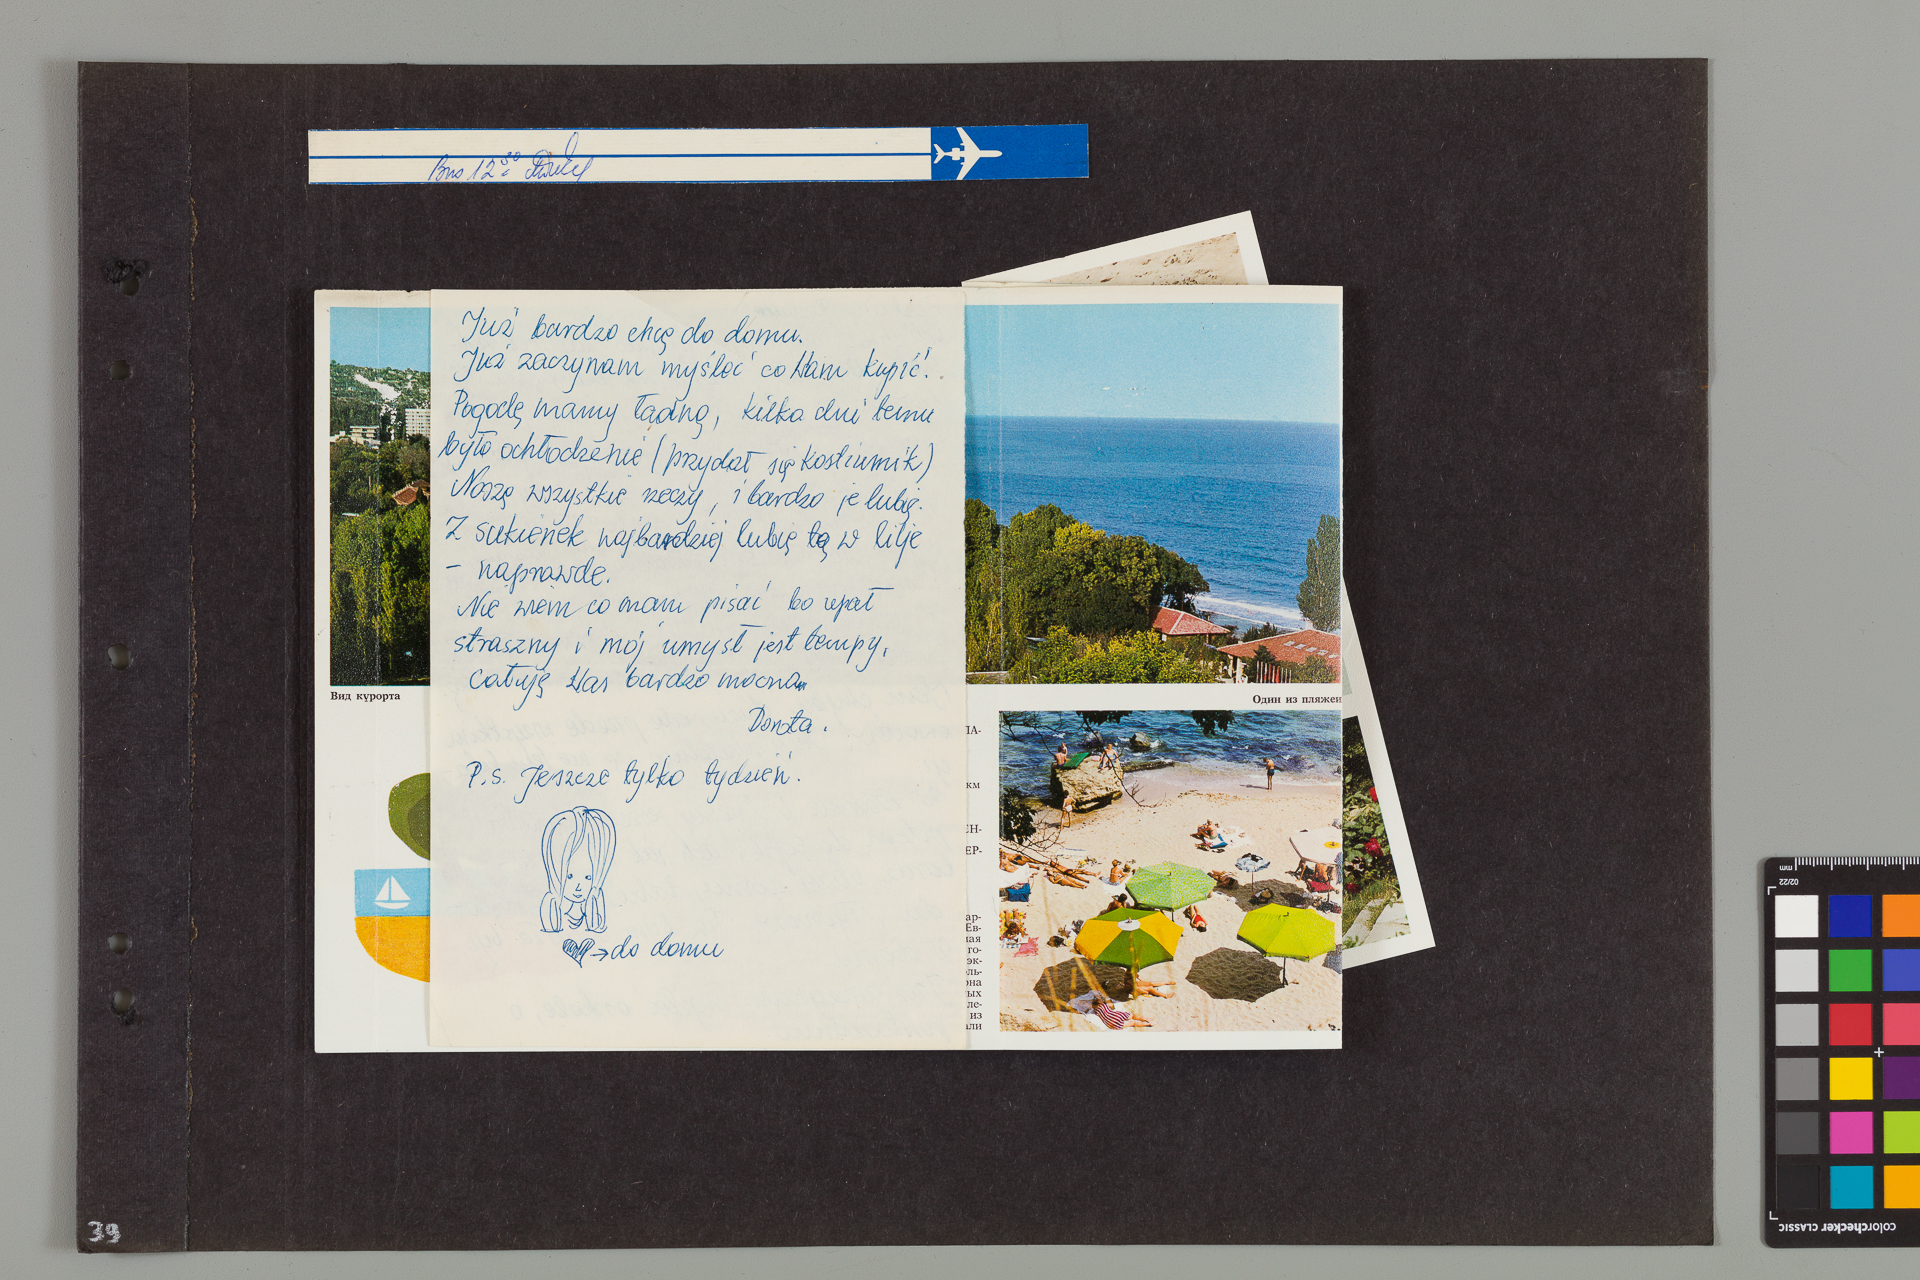 Bus 12³⁰
Już bardzo chcę do domu.
Już zaczynam myśleć co Wam kupić!
Pogodę mamy ładną, kilka dni temu
było ochłodzenie (przydał się kostiumik)
Noszę wszystkie rzeczy, i bardzo je lubię.
Z sukienek najbardziej lubię tą w lilje
– naprawdę.
Nie wiem co mam pisać bo upał
straszny i mój umysł jest tempy.
Całuję Was bardzo mocno
Donata.
P.S. Jeszcze tylko tydzień.
→ do domu
Вид курорта
Один из пляжей
ПА-
км
ЕН-
ЕР-
ар-
Ев-
ная
го-
эк-
оль-
она
ных
ле-
из
али
39
mm
02/22
colorchecker CLASSIC